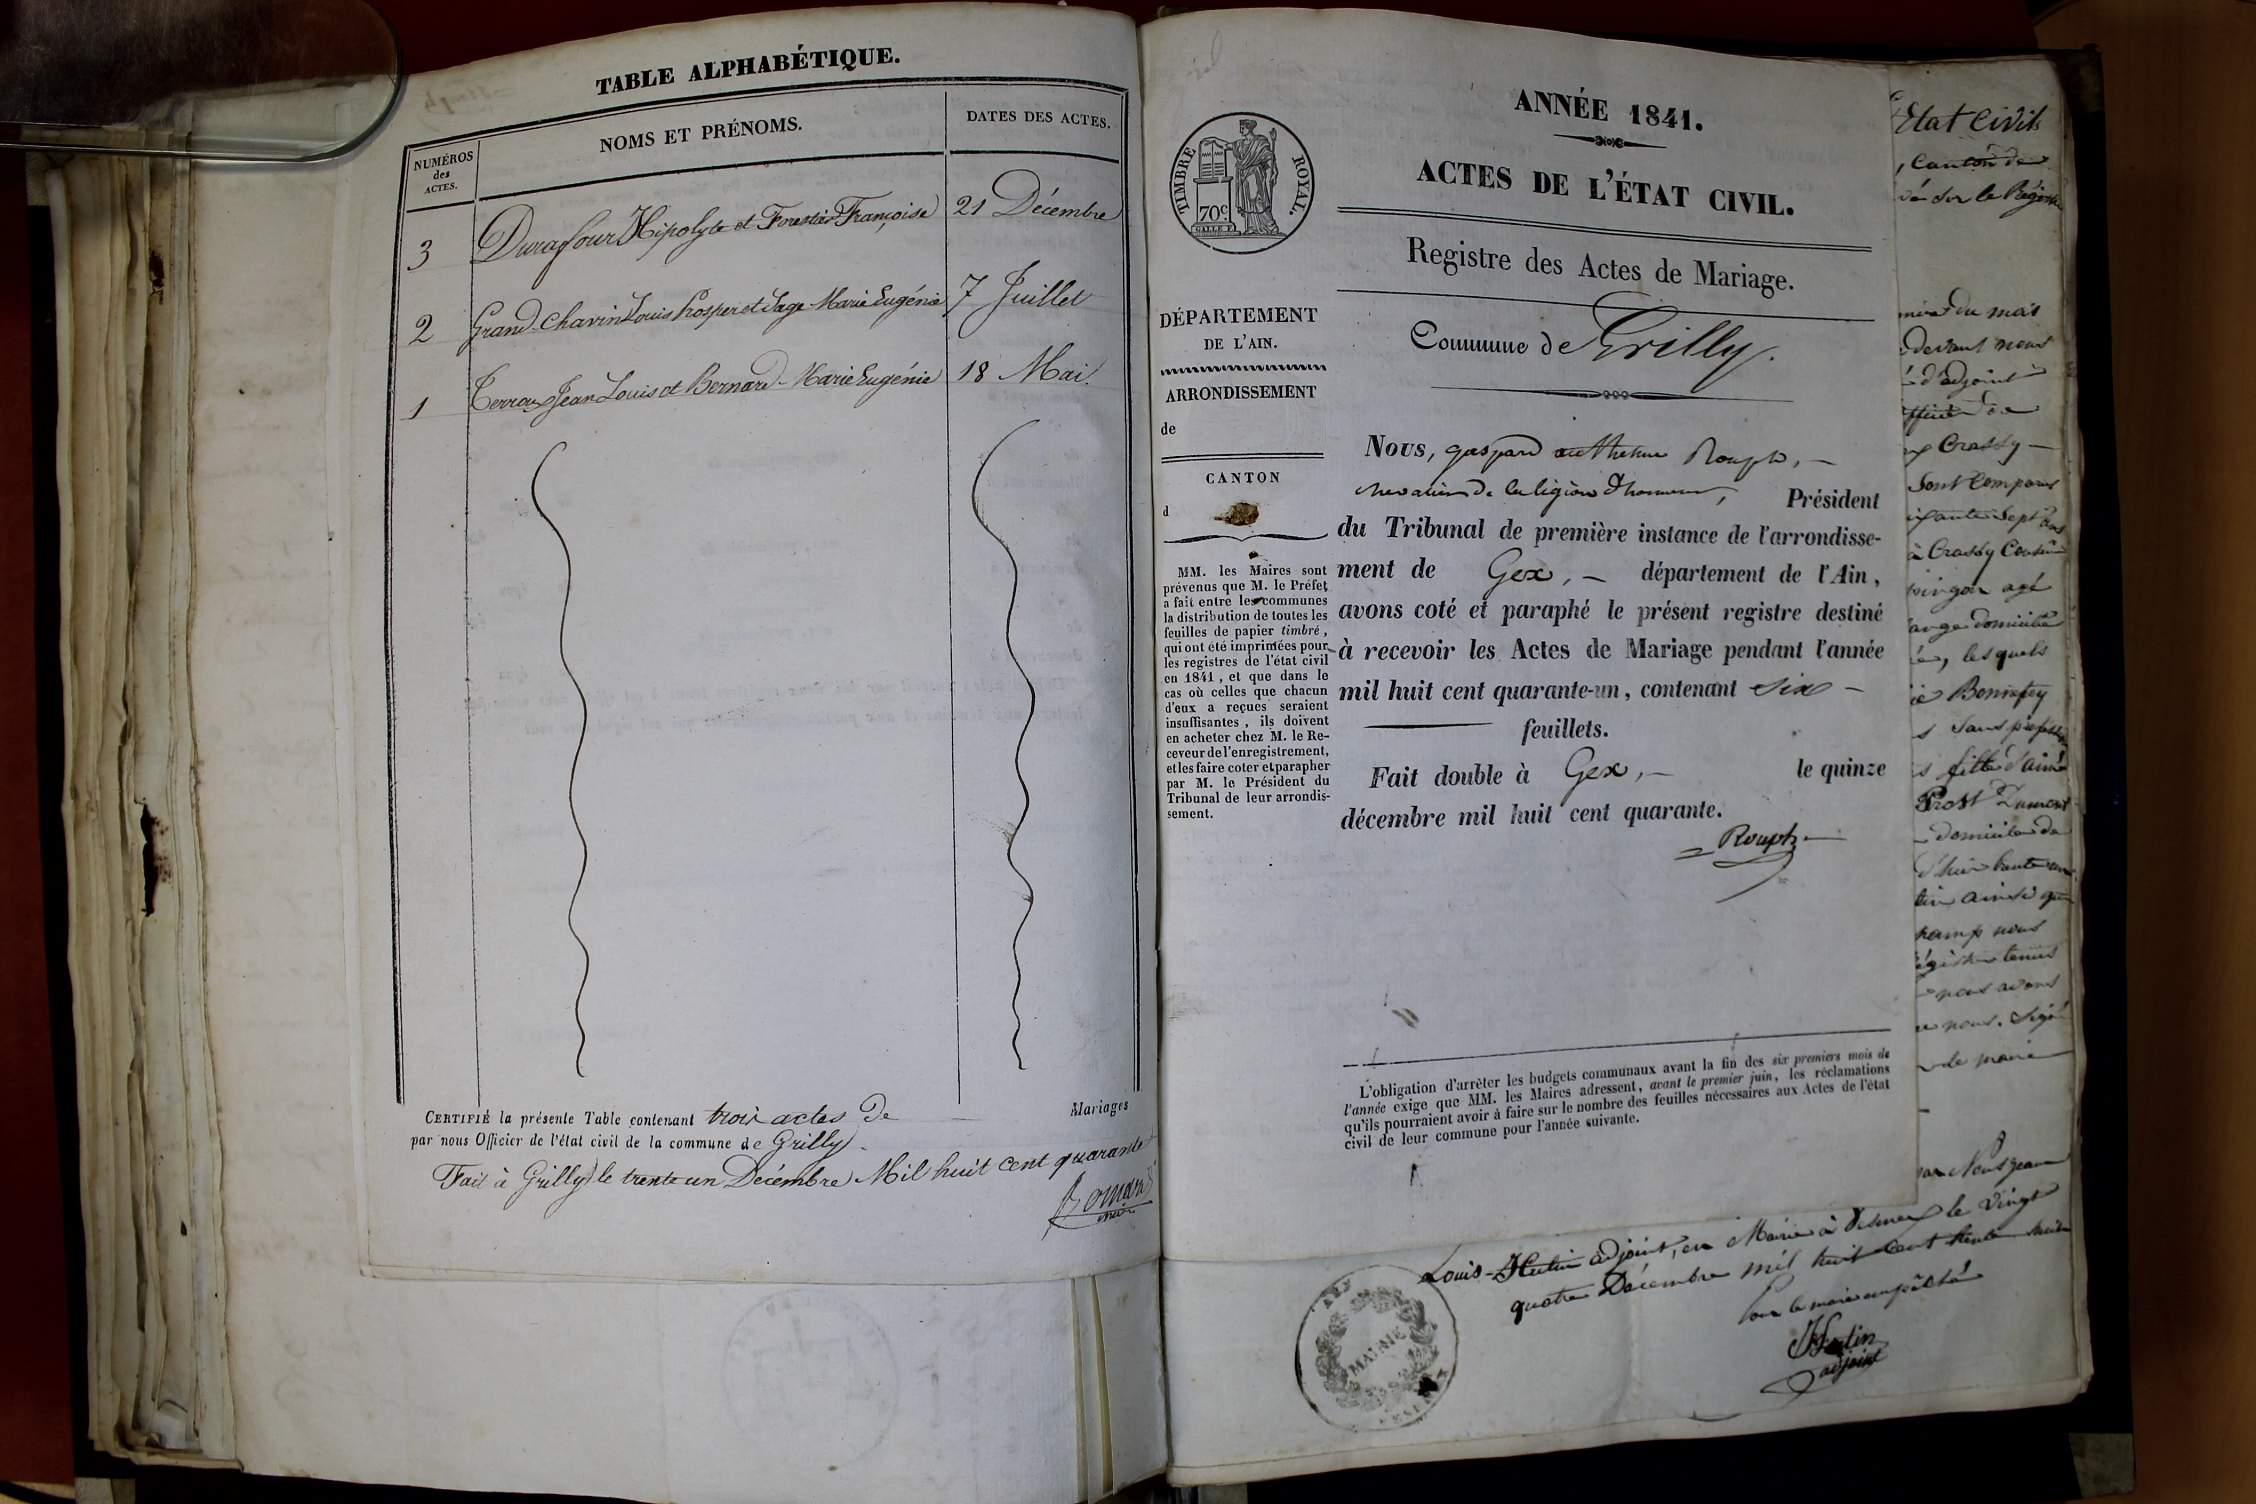 TABLE ALPHABÉTIQUE.
NUMÉROS des ACTES.
NOMS ET PRÉNOMS.
DATES DES ACTES.
3 Durafour Hipolyte et Forestier Françoise 21 Décembre
2 Grand-Chavin Louis Prosper et Sage Marie Eugénie 7 Juillet
1 Terroux Jean Louis et Bernard Marie Eugénie 18 Mai.
CERTIFIÉ la présente Table contenant trois actes De Mariages
par nous Officier de l'état civil de la commune de Grilly.
Fait à Grilly le trente un Décembre Mil huit cent quarante
maire
TIMBRE ROYAL.
70c
ANNÉE 1841.
ACTES DE L'ÉTAT CIVIL.
Registre des Actes de Mariage.
Commune de Grilly.
DÉPARTEMENT
DE L'AIN.
ARRONDISSEMENT
de
CANTON
d
MM. les Maires sont
prévenus que M. le Préfet
a fait entre les communes
la distribution de toutes les
feuilles de papier timbré,
qui ont été imprimées pour
les registres de l'état civil
en 1841, et que dans le
cas où celles que chacun
d'eux a reçues seraient
insuffisantes, ils doivent
en acheter chez M. le Re-
ceveur de l'enregistrement,
et les faire coter et parapher
par M. le Président du
Tribunal de leur arrondis-
sement.
Nous, gaspard anthelme Rouph, —
chevalier de la légion d'honneur, Président
du Tribunal de première instance de l'arrondisse-
ment de Gex, — département de l'Ain,
avons coté et paraphé le présent registre destiné
à recevoir les Actes de Mariage pendant l'année
mil huit cent quarante-un, contenant six —
feuillets.
Fait double à Gex, — le quinze
décembre mil huit cent quarante.
Rouph
L'obligation d'arrêter les budgets communaux avant la fin des six premiers mois de
l'année exige que MM. les Maires adressent, avant le premier juin, les réclamations
qu'ils pourraient avoir à faire sur le nombre des feuilles nécessaires aux Actes de l'état
civil de leur commune pour l'année suivante.
Etat Civil
, Canton de
sur le Régistre
du mois
devant nous
d'adjoint
Crassy —
Sont Comparus
Sept ans
à Crassy
agé
domicilié
, les quels
Bonnefoy
Sans profession
fille d'aimé
Prost Dumont
domicile de
ainsi que
champ nous
tenus
nous avons
nous. Signé
de mairie
par Nous jean
Louis Hutin adjoint, en Mairie à Vesenex le Vingt
quatre Décembre mil huit cent trente huit
Pour le maire empêché
Hutin
adjoint
MAIRIE